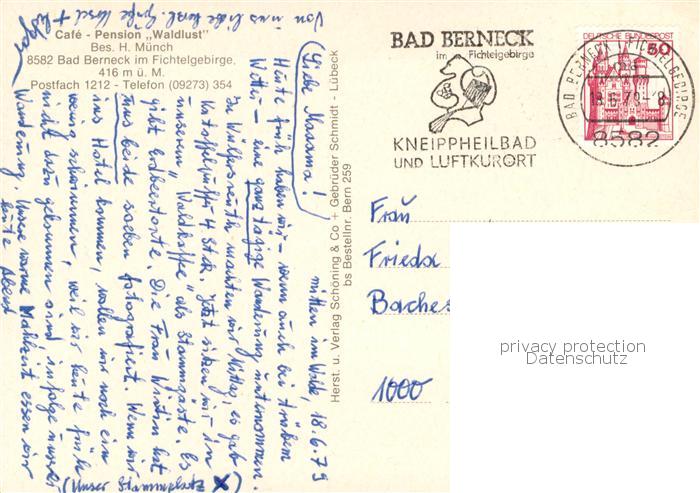 Café - Pension „Waldlust"
Bes. H. Münch
8582 Bad Berneck im Fichtelgebirge,
416 m ü. M.
Postfach 1212 - Telefon (09273) 354
mitten im Walde, 18.6.79
Liebe Mamama!
Heute früh haben wir – wenn auch bei trübem
Wetter – eine ganztägige Wanderung unternommen.
In machten wir Mittag, es gab
Kartoffelpuffer 4 Stck. Jetzt sitzen wir in
unserem „Waldkaffee" als Stammgäste. Es
gibt Erdbeertorte. Die Frau Wirtin hat
uns beide soeben fotografiert. Wenn wir
ins Hotel kommen, wollen wir noch ein
wenig schwimmen, weil wir heute früh
nicht dazu gekommen sind, infolge unserer
Wanderung. Unsere warme Mahlzeit essen wir
heute Abend
Von uns liebe
(Unser
Herst. u. Verlag Schöning & Co + Gebrüder Schmidt - Lübeck
bs Bestellnr. Bern 259
BAD BERNECK
im Fichtelgebirge
KNEIPPHEILBAD
UND LUFTKURORT
BAD BERNECK I. FICHTELGEBIRGE
18.6.79-8
8582
DEUTSCHE BUNDESPOST
50
Frau
Frieda
Baches
1000
privacy protection
Datenschutz